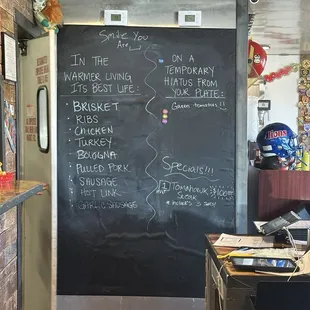 Smile You
Are
In the
warmer living
its best life:
Brisket
Ribs
Chicken
Turkey
Bologna
Pulled Pork
Sausage
Hot Link
Garlic Sausage
On a
temporary
hiatus from
your plate:
Specials!!!
Tomahawk
Steak